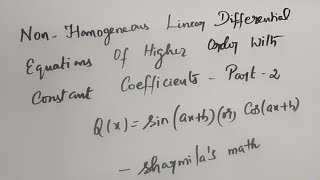 Non-Homogeneous Linear Differential
Equations Of Higher Order With
Constant Coefficients - Part-2
Q(x) = sin(ax+b) (or) Cos(ax+b)
- sharmila's math